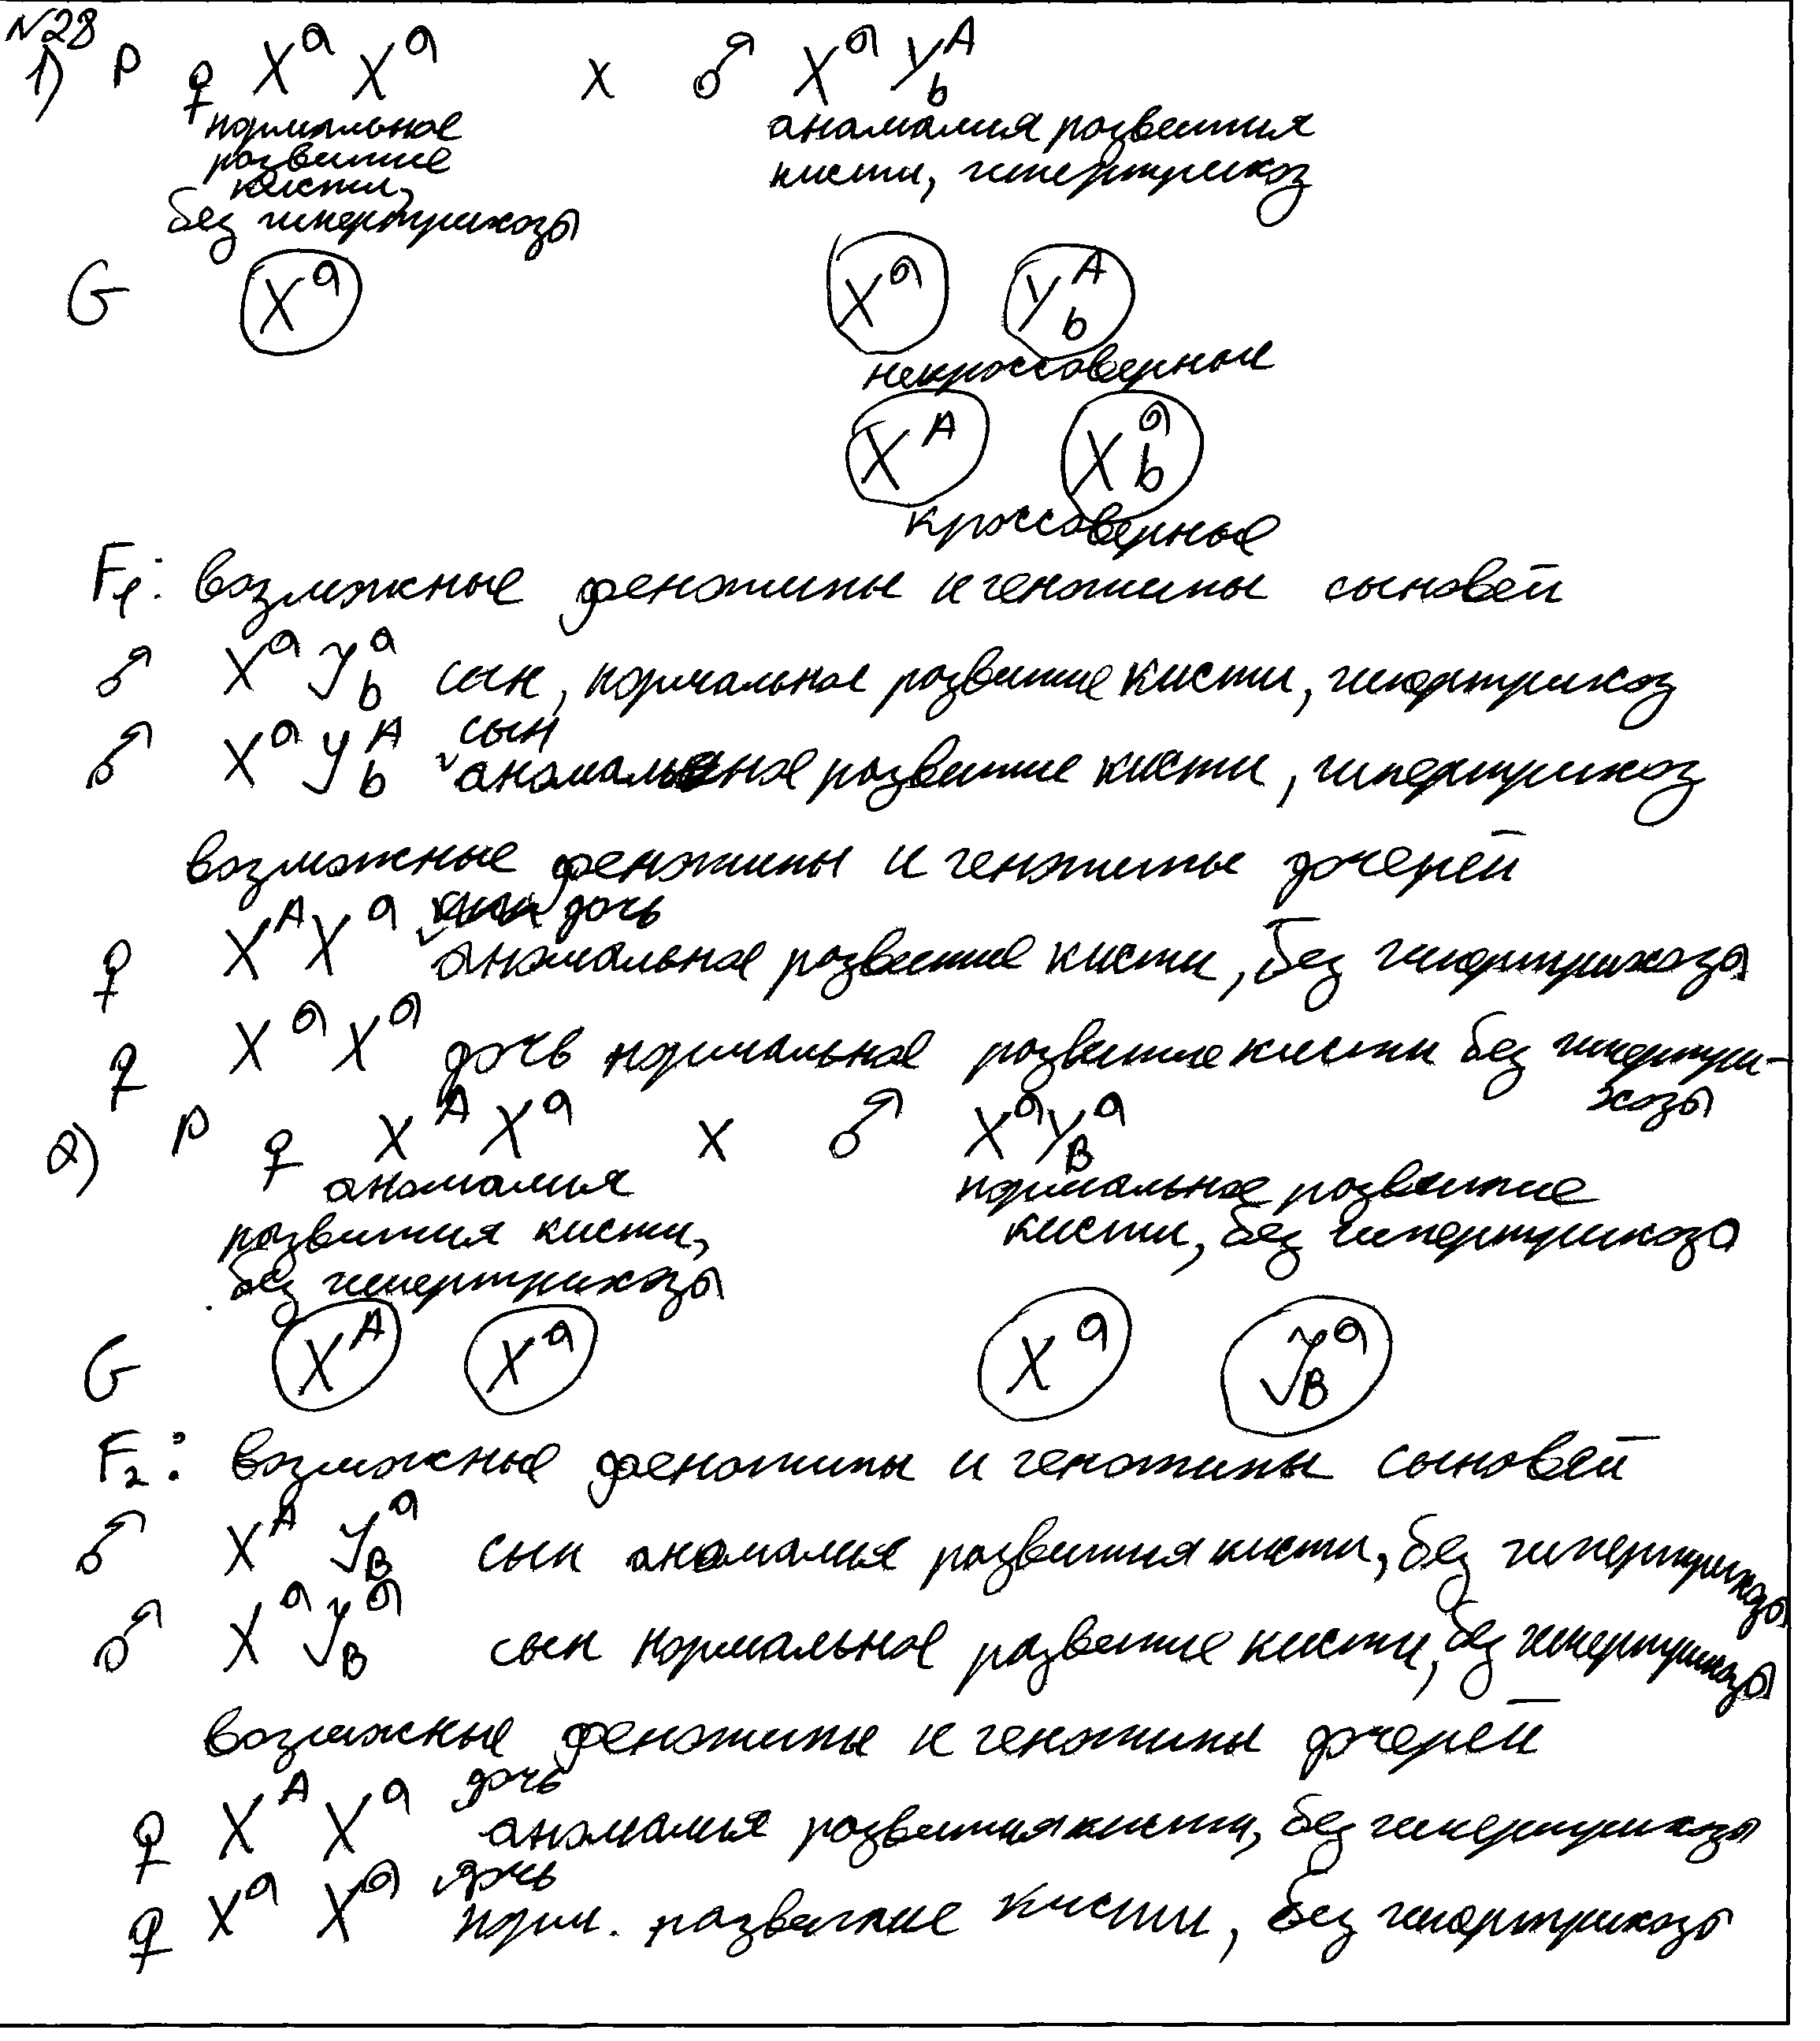 №28
1) P ♀ X^a X^a x ♂ X^a Y^A_b
нормальное аномалия развития
развитие кисти, гипертрихоз
кисти,
без гипертрихоза
G X^a X^a Y^A_b
некроссоверные
X^A X^a_b
кроссоверные
F1: возможные фенотипы и генотипы сыновей
♂ X^a Y^a_b сын, нормальное развитие кисти, гипертрихоз
♂ X^a Y^A_b сын аномальное развитие кисти, гипертрихоз
возможные фенотипы и генотипы дочерей
♀ X^A X^a дочь аномальное развитие кисти, без гипертрихоза
♀ X^a X^a дочь нормальное развитие кисти без гипертри-
хоза
2) P ♀ X^A X^a x ♂ X^a Y^a_B
аномалия нормальное развитие
развития кисти, кисти, без гипертрихоза
без гипертрихоза
G X^A X^a X^a Y^a_B
F2: возможные фенотипы и генотипы сыновей
♂ X^A Y^a_B сын аномалия развития кисти, без гипертрихоза
♂ X^a Y^a_B сын нормальное развитие кисти, без гипертрихоза
возможные фенотипы и генотипы дочерей
♀ X^A X^a дочь аномалия развития кисти, без гипертрихоза
♀ X^a X^a дочь норм. развитие кисти, без гипертрихоза